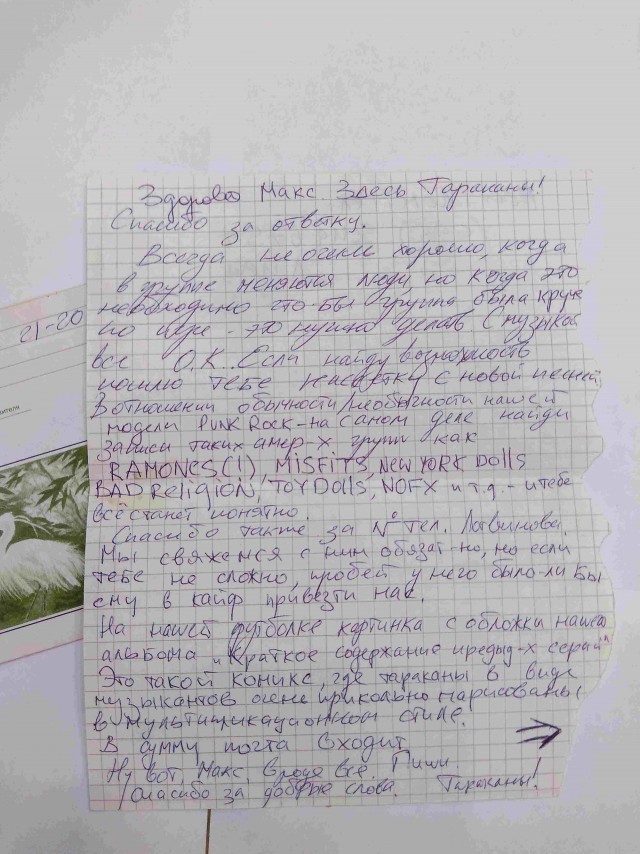 Здорово Макс. Здесь Тараканы!
Спасибо за ответку.
Всегда не очень хорошо, когда
в группе меняются люди, но когда это
необходимо что-бы группа была круче
по игре - это нужно делать. С музыкой
все О.К.. Если найду возможность
пошлю тебе кассетку с новой песней.
В отношении обычности/необычности нашей
модели PUNK ROCK - на самом деле найди
записи таких амер-х групп как
RAMONES(!), MISFITS, NEW YORK Dolls
BAD Religion, TOY Dolls, NOFX и т.д. - и тебе
всё станет понятно.
Спасибо также за N° тел. Логвинова.
Мы свяжемся с ним обязат-но, но если
тебе не сложно, пробей у него было-ли бы
ему в кайф привезти нас.
На нашей футболке картинка с обложки нашего
альбома "Краткое содержание предыд-х серий"
Это такой комикс, где тараканы в виде
музыкантов очень прикольно нарисованы
в мультипликационном стиле.
В сумму почта входит
Ну вот, Макс, вроде все. Пиши
Спасибо за добрые слова. Тараканы!
21-20